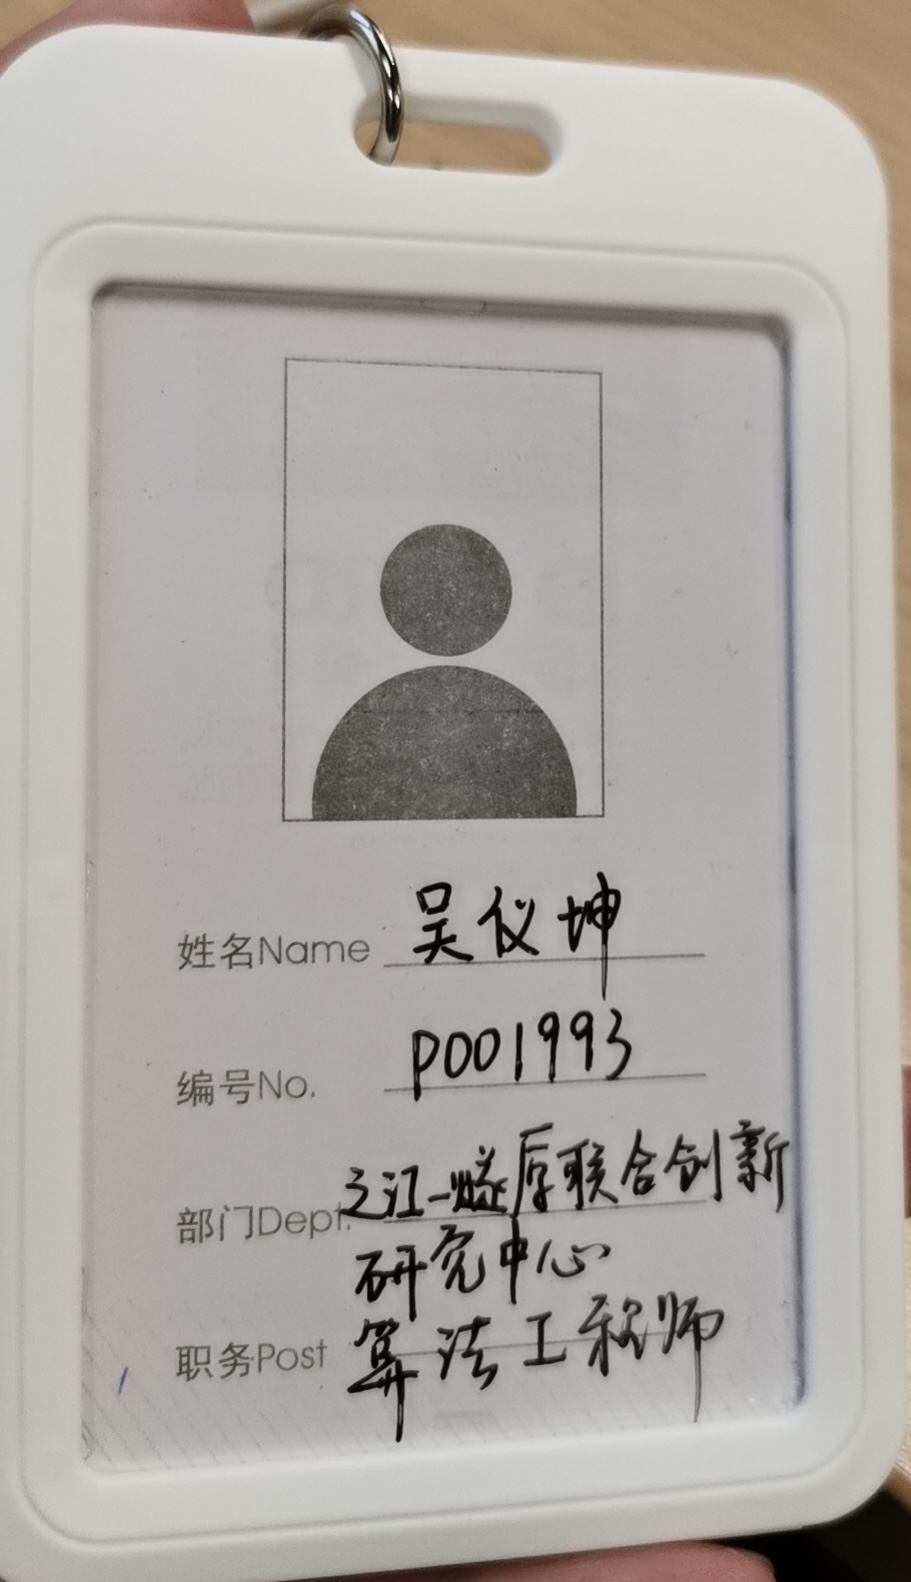 姓名Name 吴仪坤
编号No. P001993
部门Dept. 之江-燧原联合创新
研究中心
职务Post 算法工程师